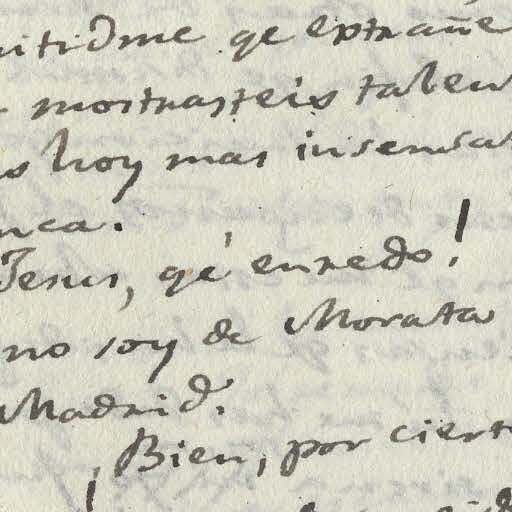 itidme qe extrañe
mostrasteis talen
s hoy mas insensat
nca.
Jesus, qé enredo!
no soy de Morata
Madrid.
¡Bien, por ciert